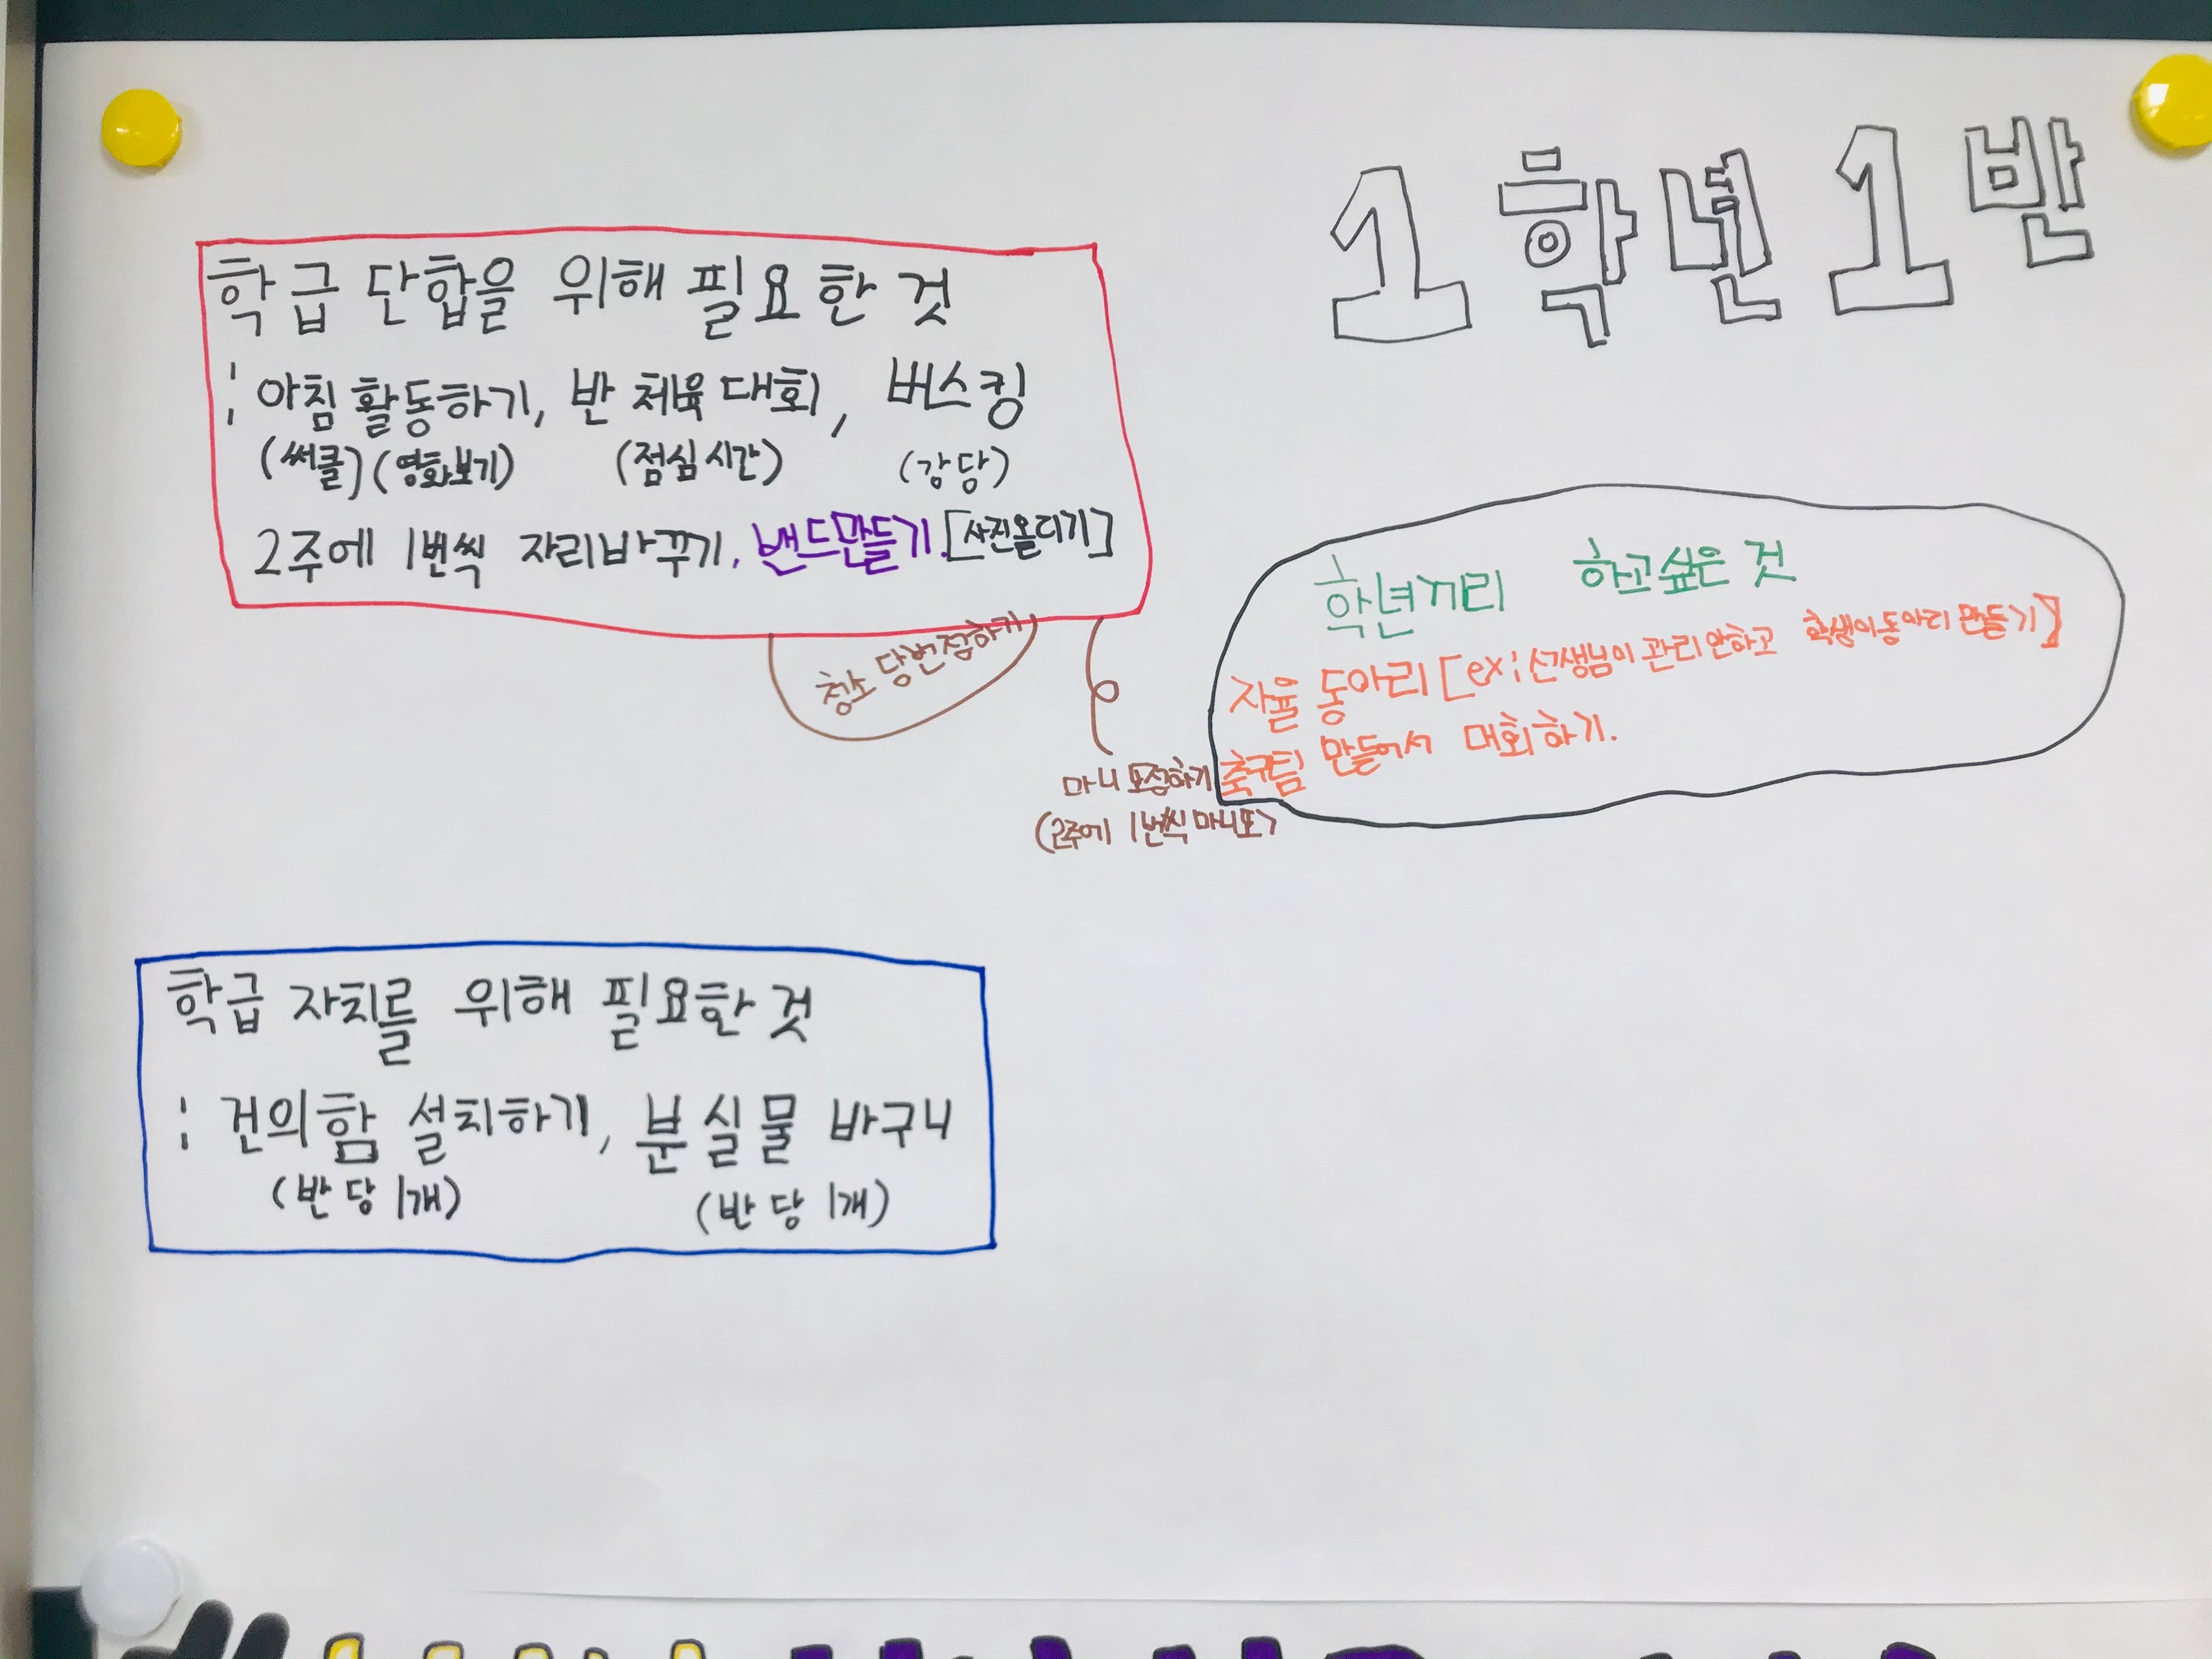 1학년 1반
학급 단합을 위해 필요한 것
: 아침 활동하기, 반 체육 대회, 버스킹
(써클) (영화보기) (점심 시간) (강당)
2주에 1번씩 자리바꾸기, 밴드만들기 [사진올리기]
청소 당번 정하기
마니또정하기
(2주에 1번씩 마니또)
학년끼리 하고싶은 것
자율 동아리 [ex; 선생님이 관리 안하고 학생이 동아리 만들기]
축구팀 만들어서 대회하기.
학급 자치를 위해 필요한 것
: 건의함 설치하기, 분실물 바구니
(반 당 1개) (반 당 1개)